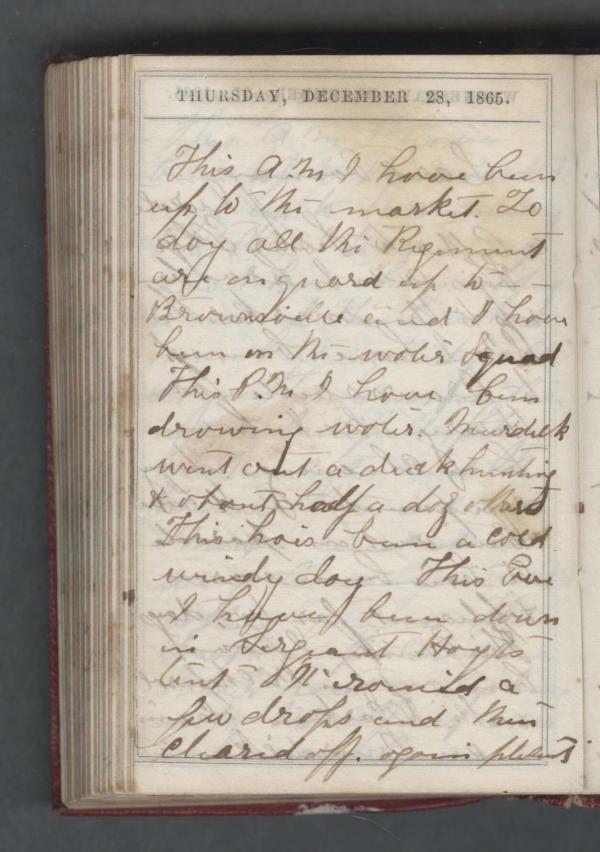 THURSDAY, DECEMBER 28, 1865.
This A.M I have been
up to the market. To
day all the Regiment
are on guard up to - -
Brownsville and I have
been on the water squad
This P.M I have been
drawing water. Murdick
went out a duck hunting
& about half a doz others
This has been a cold
windy day This Eve
I have been down
in Sergeant Hoyts
tent It rained a
few drops and then
cleared off. again